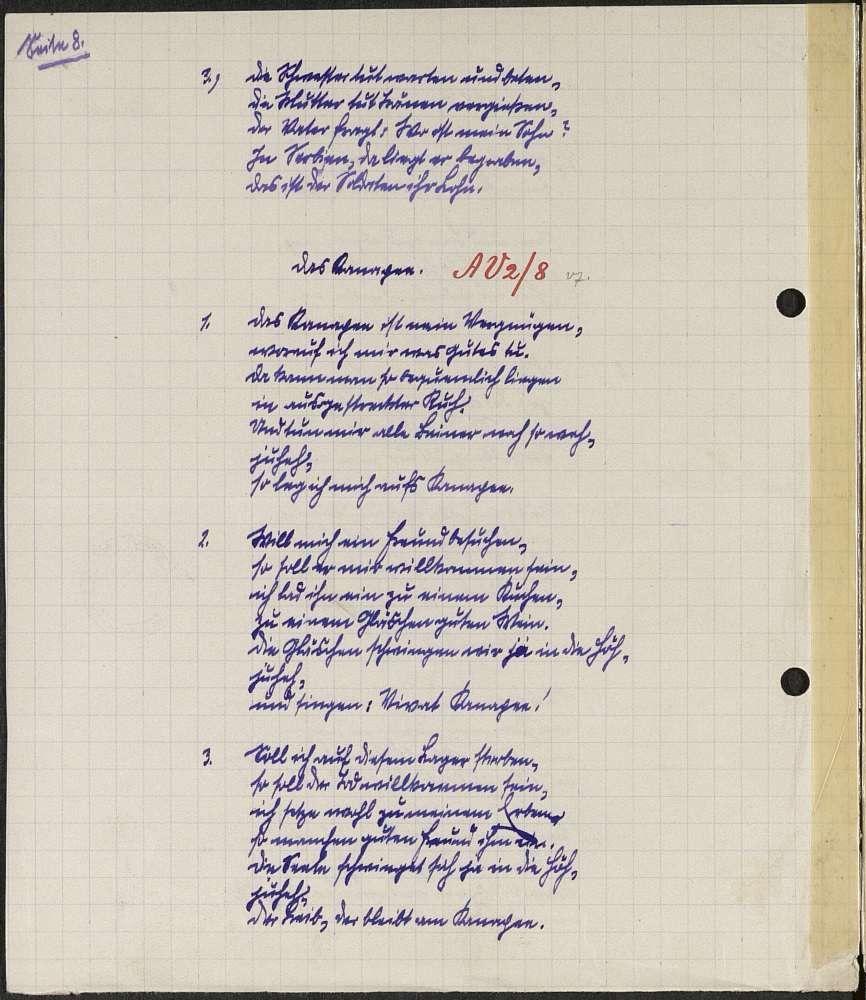 Seite 8.
3.) Die Schwester tut warten und beten,
die Mutter tut Tränen vergießen,
der Vater fragt: Wo ist mein Sohn?
In Serbien, da liegt er begraben,
das ist der Soldaten ihr Lohn.
Das Kanapee. AV2/8
1. Das Kanapee ist mein Vergnügen,
worauf ich mir was Gutes tu.
Da kann man so bequemlich liegen
in ausgestreckter Ruh.
Und tun mir alle Beiner noch so weh,
juheh,
so leg ich mich aufs Kanapee.
2. Will mich ein Freund besuchen,
so soll er mir willkommen sein,
ich lad ihn ein zu einem Kuchen,
zu einem Gläschen guten Wein.
Die Gläschen schwingen wir ja in die Höh,
juheh,
und singen: Vivat Kanapee!
3. Soll ich auf diesem Lager sterben,
so soll der Tod willkommen sein,
ich setze wohl zu meinem Erben
so manchen guten Freund ihm ein.
Die Seele schwinget sich ja in die Höh,
juheh,
der Leib, der bleibt am Kanapee.